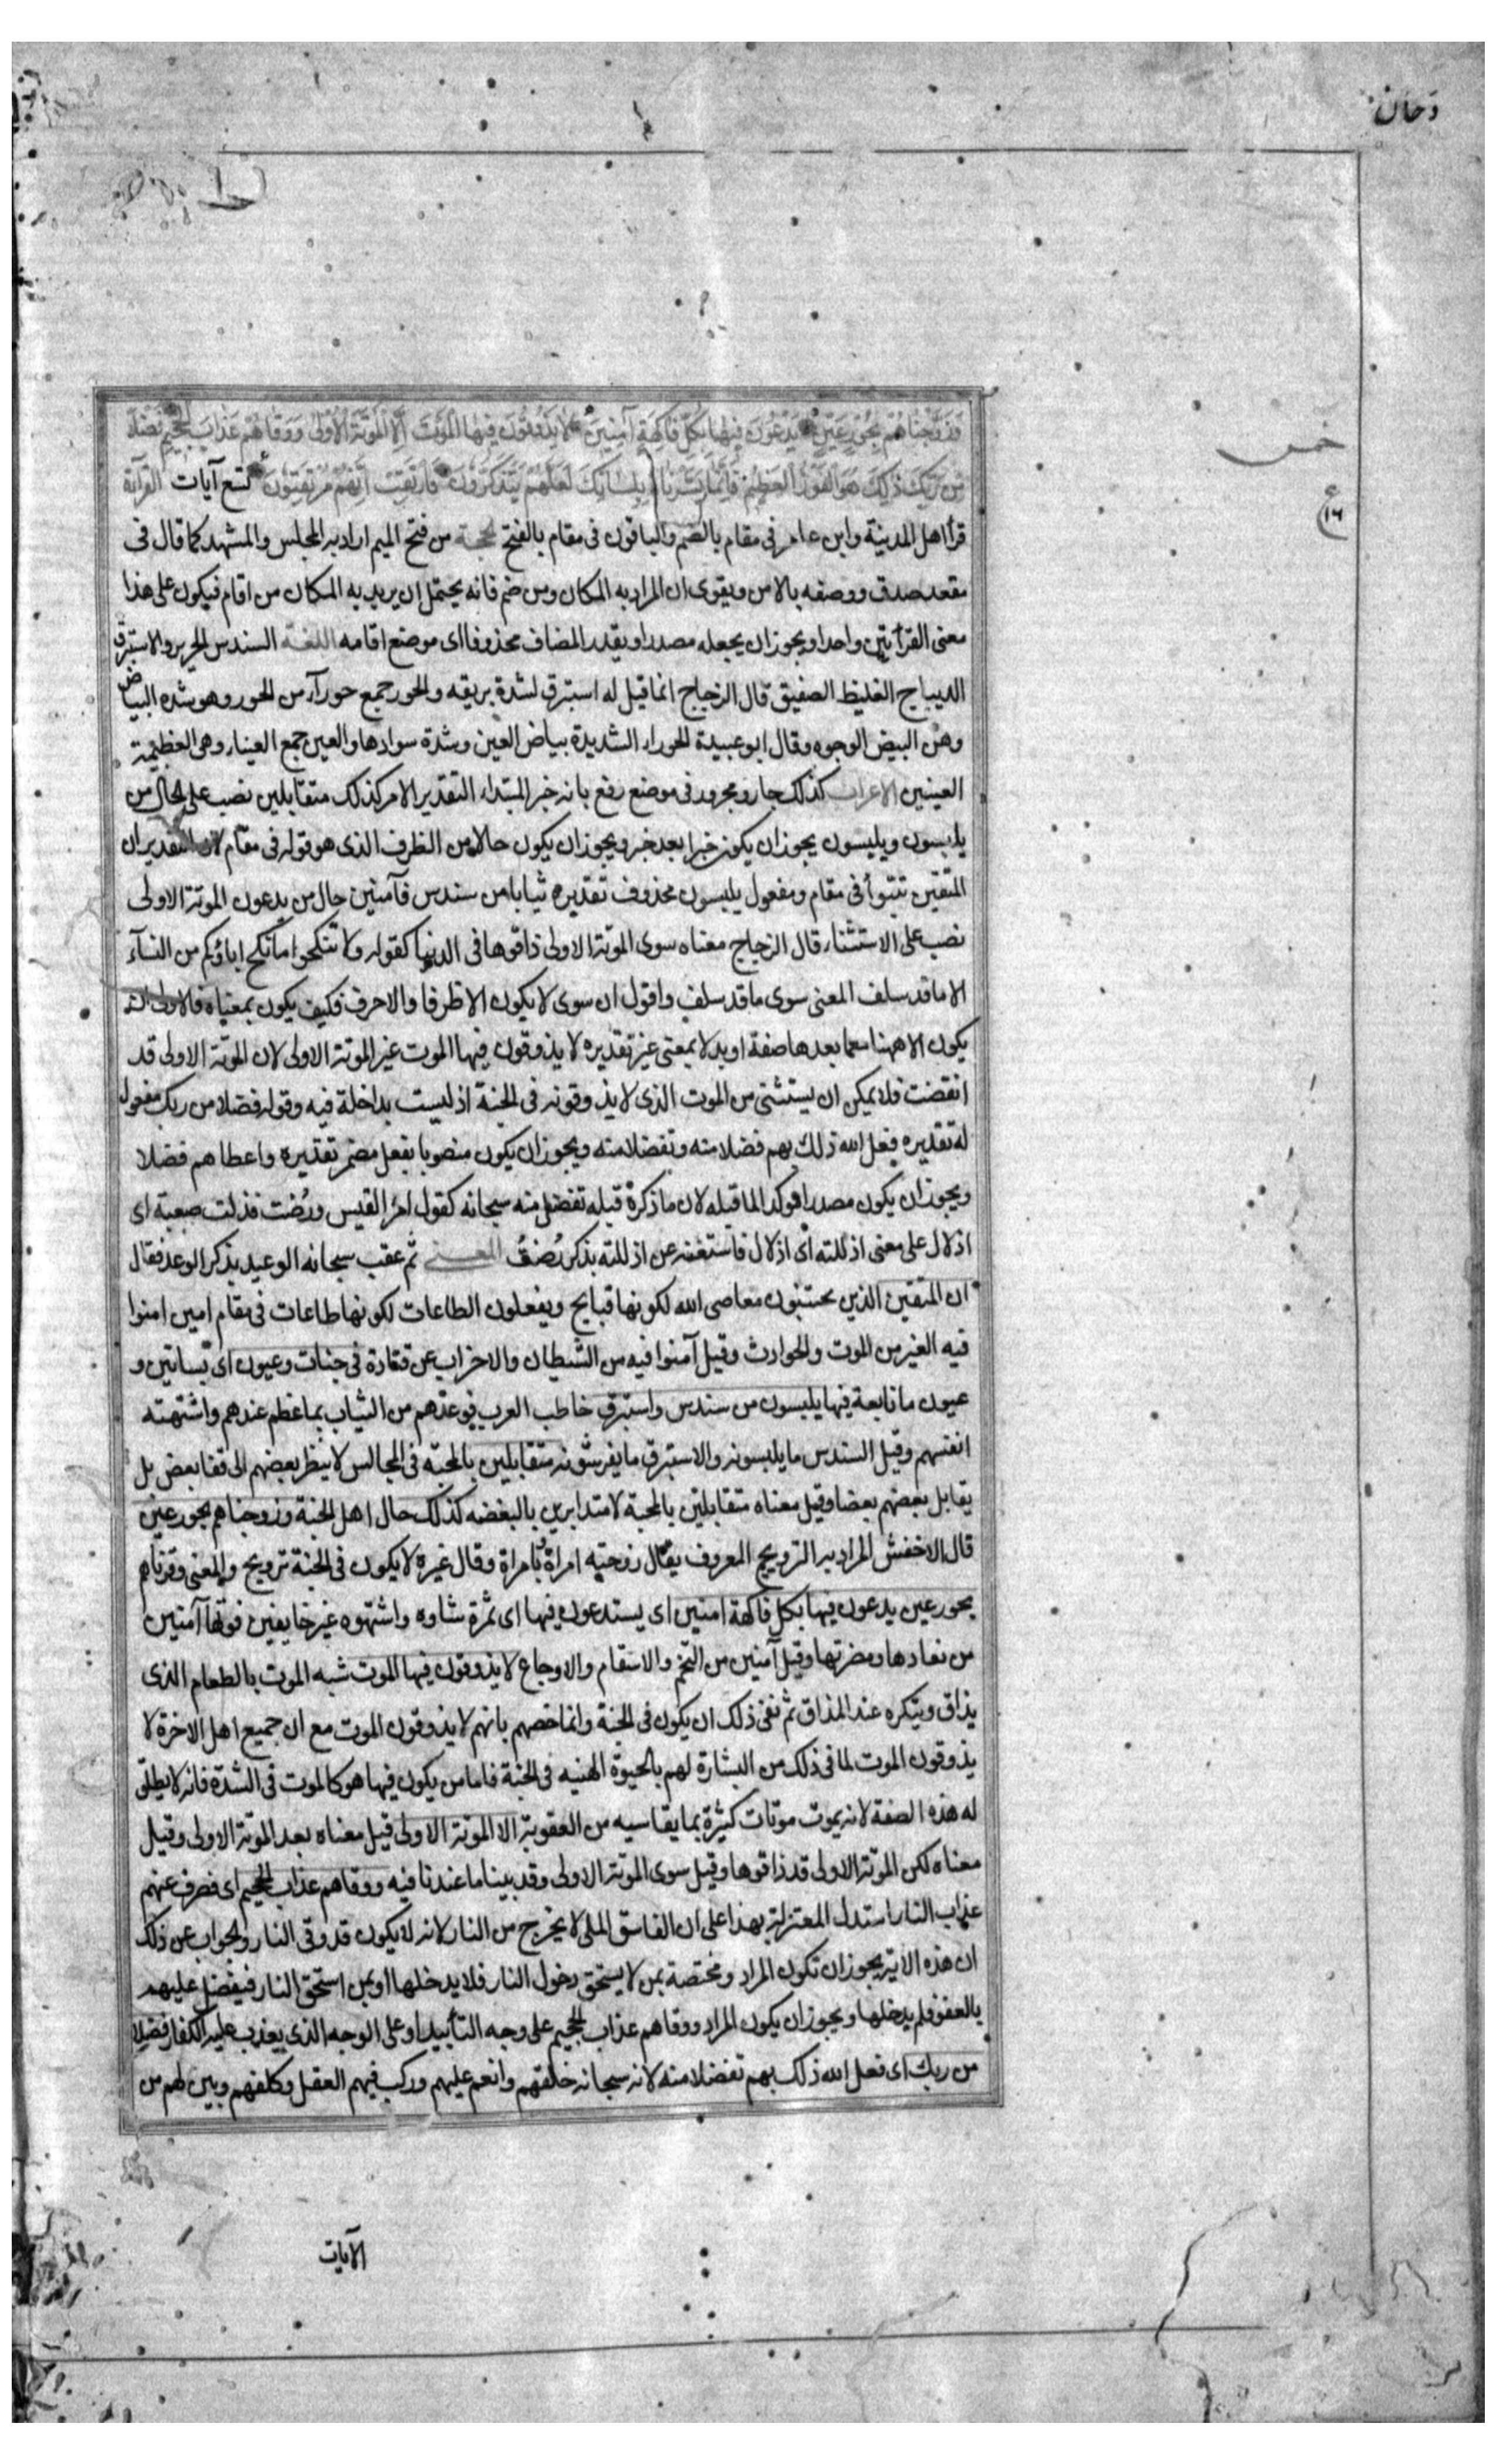 دخان
خمس
ع
١٦
وَزَوَّجْنَاهُمْ بِحُورٍ عِينٍ يَدْعُونَ فِيهَا بِكُلِّ فَاكِهَةٍ آمِنِينَ لَا يَذُوقُونَ فِيهَا الْمَوْتَ اِلَّا الْمَوْتَةَ الْاُولَى وَوَقَاهُمْ عَذَابَ الْجَحِيمِ فَضْلًا
مِنْ رَبِّكَ ذَلِكَ هُوَ الْفَوْزُ الْعَظِيمُ فَاِنَّمَا يَسَّرْنَاهُ بِلِسَانِكَ لَعَلَّهُمْ يَتَذَكَّرُونَ فَارْتَقِبْ اِنَّهُمْ مُرْتَقِبُونَ تسع آيات القرآءة
قرأ اهل المدينة وابن عامر فى مقام بالضم والباقون فى مقام بالفتح الحجة من فتح الميم اراد به المجلس والمشهد كما قال فى
مقعد صدق ووصفه بالامن ويقوى ان المراد به المكان ومن ضم فانه يحتمل ان يريد به المكان من اقام فيكون على هذا
معنى القرأتين واحدا ويجوز ان يجعله مصدرا ويقدر المضاف محذوفا اى موضع اقامه اللغة السندس الحرير والاستبرق
الديباج الغليظ الصفيق قال الزجاج انما قيل له استبرق لشدة بريقه والحور جمع حورآء من الحور وهو شده البياض
وهن البيض الوجوه وقال ابو عبيدة الحوراء الشديدة بياض العين وشدة سوادها والعين جمع العيناء وهى العظيمة
العينين الاعراب كذلك جار ومجرور فى موضع رفع بانه خبر المبتداء التقدير الامر كذلك متقابلين نصب على الحال من
يلبسون ويلبسون يجوز ان يكون خبرا بعد خبر ويجوز ان يكون حالا من الظرف الذى هو قوله فى مقام لان التقدير ان
المتقين تتبوأ فى مقام ومفعول يلبسون محذوف تقديره ثيابا من سندس فآمنين حال من يدعون الموتة الاولى
نصب على الاستثناء قال الزجاج معناه سوى الموتة الاولى ذاقوها فى الدنيا كقوله ولا تنكحوا ما نكح اباؤكم من النسآء
الا ما قد سلف المعنى سوى ما قد سلف واقول ان سوى لا يكون الا ظرفا والا حرف فكيف يكون بمعناه فالاولى ان
يكون الا ههنا مع ما بعدها صفة او بدلا بمعنى غير تقديره لا يذوقون فيها الموت غير الموتة الاولى لان الموتة الاولى قد
انقضت فلا يمكن ان يستثنى من الموت الذى لا يذوقونه فى الجنة اذ ليست بداخلة فيه وقوله فضلا من ربك مفعول
له تقديره فعل الله ذلك بهم فضلا منه وتفضلا منه ويجوز ان يكون منصوبا بفعل مضمر تقديره واعطاهم فضلا
ويجوز ان يكون مصدرا موكدا لما قبله لان ما ذكره قبله تفضل منه سبحانه كقول امرؤ القيس ورُضت فذلت صعبة اى
اذلال على معنى اذللته اى اذلال فاستغنى عن اذللته بذكر رُضتُ المعنى ثم عقب سبحانه الوعيد بذكر الوعد فقال
ان المتقين الذين يجتنبون معاصى الله لكونها قبايح ويفعلون الطاعات لكونها طاعات فى مقام امين امنوا
فيه الغير من الموت والحوادث وقيل آمنوا فيه من الشيطان والاحزان عن قتادة فى جنات وعيون اى بساتين و
عيون ما نابعة فيها يلبسون من سندس واستبرق خاطب العرب فوعدهم من الثياب بما عظم عندهم واشتهته
انفسهم وقيل السندس ما يلبسونه والاستبرق ما يفرشونه متقابلين بالمحبة فى المجالس لا ينظر بعضهم الى قفا بعض بل
يقابل بعضهم بعضا وقيل معناه متقابلين بالمحبة لا متدابرين بالبغضه كذلك حال اهل الجنة وزوجناهم بحور عين
قال الاخفش المراد به التزويج المعروف يقال زوجته امراة بامراة وقال غيره لا يكون فى الجنة تزويج والمعنى وقرناهم
بحور عين يدعون فيها بكل فاكهة امنين اى يستدعون فيها اى ثمرة شاوه واشتهوه غير خايفين فوتها آمنين
من نفادها ومضرتها وقيل آمنين من التخم والاسقام والاوجاع لا يذوقون فيها الموت شبه الموت بالطعام الذى
يذاق ويتكره عند المذاق ثم نفى ذلك ان يكون فى الجنة وانما خصهم بانهم لا يذوقون الموت مع ان جميع اهل الاخرة لا
يذوقون الموت لما فى ذلك من البشارة لهم بالحيوة الهنيه فى الجنة فاما من يكون فيها هو كالموت فى الشدة فانه لا يطلق
له هذه الصفة لانه يموت موتات كثيرة بما يقاسيه من العقوبة الا الموتة الاولى قيل معناه بعد الموتة الاولى وقيل
معناه لكن الموتة الاولى قد ذاقوها وقيل سوى الموتة الاولى وقد بينا ما عندنا فيه ووقاهم عذاب الجحيم اى فصرف عنهم
عذاب النار استدل المعتزلة بهذا على ان الفاسق الملى لا يخرج من النار لانه لا يكون قد وقى النار والجواب عن ذلك
ان هذه الاية يجوز ان تكون المراد ومختصة بمن لا يستحق دخول النار فلا يدخلها او بمن استحق النار فيفضل عليهم
بالعفو فلم يدخلها ويجوز ان يكون المراد ووقاهم عذاب الجحيم على وجه التأبيد او على الوجه الذى يعذب عليه الكفار فضلا
من ربك اى فعل الله ذلك بهم تفضلا منه لانه سبحانه خلقهم وانعم عليهم وركب فيهم العقل وكلفهم وبين لهم من
الآيات